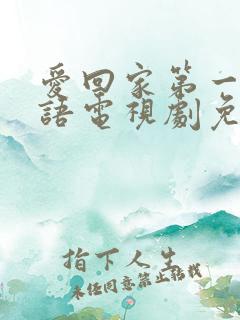 愛回家第一
語電視劇免
指下人生
未經同意禁止轉載